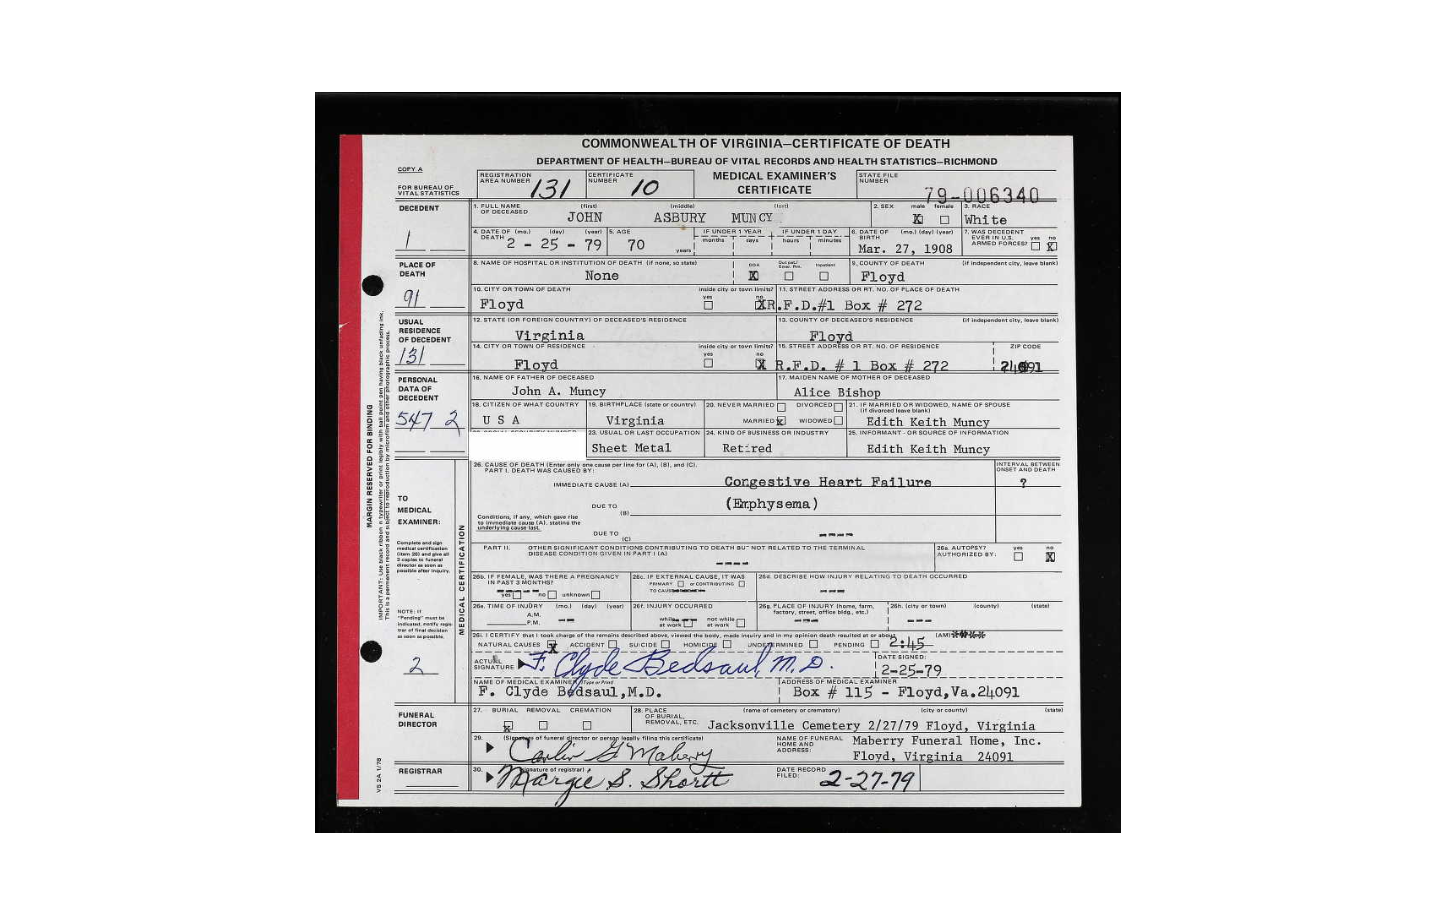 COMMONWEALTH OF VIRGINIA—CERTIFICATE OF DEATH
DEPARTMENT OF HEALTH—BUREAU OF VITAL RECORDS AND HEALTH STATISTICS—RICHMOND
COPY A
FOR BUREAU OF VITAL STATISTICS
REGISTRATION AREA NUMBER 131
CERTIFICATE NUMBER 10
MEDICAL EXAMINER'S CERTIFICATE
STATE FILE NUMBER 79-006340
DECEDENT
1
1. FULL NAME OF DECEASED (first) (middle) (last)
JOHN ASBURY MUNCY
2. SEX male X female
3. RACE White
4. DATE OF DEATH (mo.) (day) (year) 2 - 25 - 79
5. AGE 70 years
IF UNDER 1 YEAR months days
IF UNDER 1 DAY hours minutes
6. DATE OF BIRTH (mo.) (day) (year) Mar. 27, 1908
7. WAS DECEDENT EVER IN U.S. ARMED FORCES? yes no X
PLACE OF DEATH
91
8. NAME OF HOSPITAL OR INSTITUTION OF DEATH (if none, so state)
None
DOA X Inpatient
9. COUNTY OF DEATH (if independent city, leave blank)
Floyd
10. CITY OR TOWN OF DEATH inside city or town limits? yes no X
Floyd
11. STREET ADDRESS OR RT. NO. OF PLACE OF DEATH
R.F.D.#1 Box # 272
USUAL RESIDENCE OF DECEDENT
131
12. STATE (OR FOREIGN COUNTRY) OF DECEASED'S RESIDENCE
Virginia
13. COUNTY OF DECEASED'S RESIDENCE (if independent city, leave blank)
Floyd
14. CITY OR TOWN OF RESIDENCE inside city or town limits? yes no X
Floyd
15. STREET ADDRESS OR RT. NO. OF RESIDENCE ZIP CODE
R.F.D. # 1 Box # 272 24091
PERSONAL DATA OF DECEDENT
547 2
16. NAME OF FATHER OF DECEASED
John A. Muncy
17. MAIDEN NAME OF MOTHER OF DECEASED
Alice Bishop
18. CITIZEN OF WHAT COUNTRY
U S A
19. BIRTHPLACE (state or country)
Virginia
20. NEVER MARRIED DIVORCED
MARRIED X WIDOWED
21. IF MARRIED OR WIDOWED, NAME OF SPOUSE
(if divorced leave blank)
Edith Keith Muncy
23. USUAL OR LAST OCCUPATION
Sheet Metal
24. KIND OF BUSINESS OR INDUSTRY
Retired
25. INFORMANT - OR SOURCE OF INFORMATION
Edith Keith Muncy
MARGIN RESERVED FOR BINDING
MEDICAL CERTIFICATION
26. CAUSE OF DEATH (Enter only one cause per line for (A), (B), and (C).
PART I. DEATH WAS CAUSED BY:
INTERVAL BETWEEN ONSET AND DEATH
IMMEDIATE CAUSE (A) Congestive Heart Failure ?
DUE TO (B) (Emphysema)
Conditions, if any, which gave rise to immediate cause (A), stating the underlying cause last.
DUE TO (C) ----
TO MEDICAL EXAMINER:
Complete and sign medical certification (item 26) and give all 3 copies to funeral director as soon as possible after inquiry.
PART II. OTHER SIGNIFICANT CONDITIONS CONTRIBUTING TO DEATH BUT NOT RELATED TO THE TERMINAL DISEASE CONDITION GIVEN IN PART I (A)
----
26a. AUTOPSY? AUTHORIZED BY: yes no X
26b. IF FEMALE, WAS THERE A PREGNANCY IN PAST 3 MONTHS?
yes no unknown
26c. IF EXTERNAL CAUSE, IT WAS
PRIMARY or CONTRIBUTING
26d. DESCRIBE HOW INJURY RELATING TO DEATH OCCURRED
---
26e. TIME OF INJURY (mo.) (day) (year)
A.M.
P.M. --
26f. INJURY OCCURRED
while at work not while at work
26g. PLACE OF INJURY (home, farm, factory, street, office bldg., etc.)
---
26h. (city or town) (county) (state)
---
NOTE: If "Pending" must be indicated, notify registrar of final decision as soon as possible.
26i. I CERTIFY that I took charge of the remains described above, viewed the body, made inquiry and in my opinion death resulted at or about 2:45 (AM)
NATURAL CAUSES X ACCIDENT SUICIDE HOMICIDE UNDETERMINED PENDING
2
ACTUAL SIGNATURE F. Clyde Bedsaul, M.D.
DATE SIGNED: 2-25-79
NAME OF MEDICAL EXAMINER (Type or Print)
F. Clyde Bedsaul,M.D.
ADDRESS OF MEDICAL EXAMINER
Box # 115 - Floyd,Va.24091
FUNERAL DIRECTOR
27. BURIAL REMOVAL CREMATION
X
28. PLACE OF BURIAL, REMOVAL, ETC. (name of cemetery or crematory) (city or county) (state)
Jacksonville Cemetery 2/27/79 Floyd, Virginia
29. (Signature of funeral director or person legally filing this certificate)
Carlin G Maberry
NAME OF FUNERAL HOME AND ADDRESS:
Maberry Funeral Home, Inc.
Floyd, Virginia 24091
REGISTRAR
30. (signature of registrar)
Margie S. Shortt
DATE RECORD FILED: 2-27-79
VS 2A 1/78